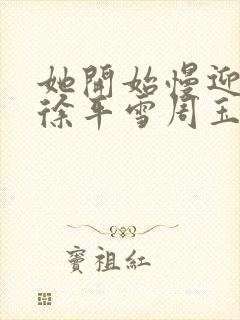 她開始慢迎
徐平雪周玉
竇祖紅